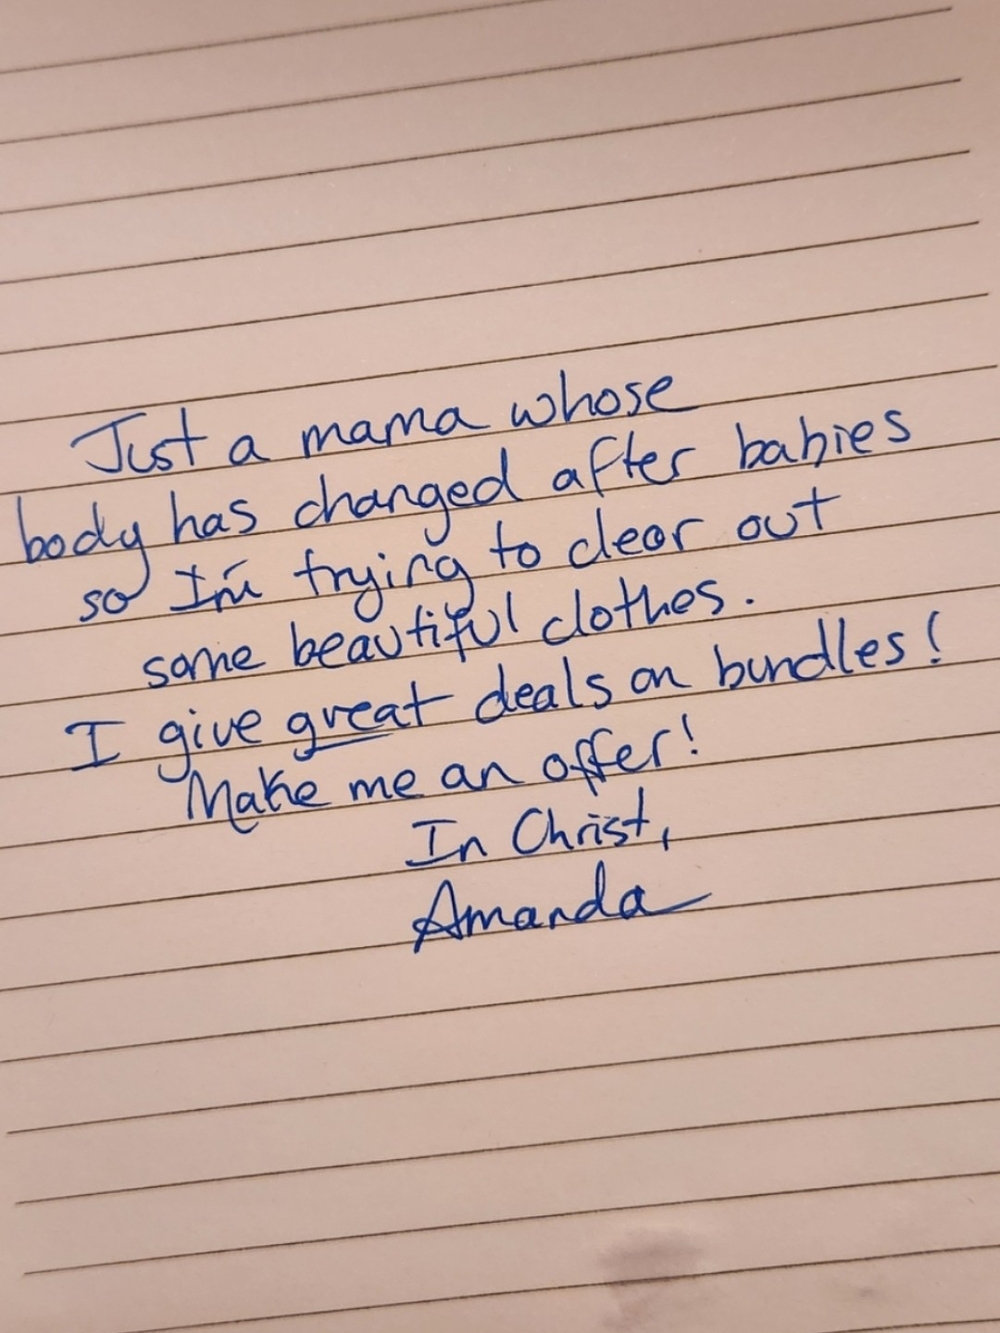 Just a mama whose
body has changed after babies
so I'm trying to clear out
some beautiful clothes.
I give great deals on bundles!
Make me an offer!
In Christ,
Amanda